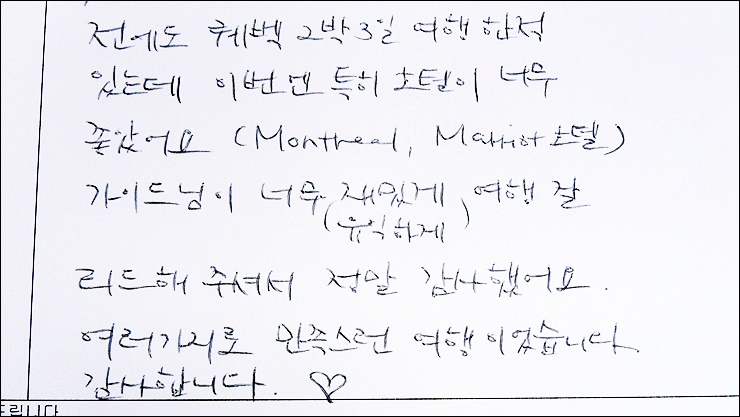 전에도 퀘벡 2박3일 여행 한적
있는데 이번엔 특히 호텔이 너무
좋았어요 (Montreal, Marriot 호텔)
가이드님이 너무 재밌게 여행 잘
(유익하게)
리드해 주셔서 정말 감사했어요.
여러가지로 만족스런 여행이었습니다
감사합니다. ♡
드립니다